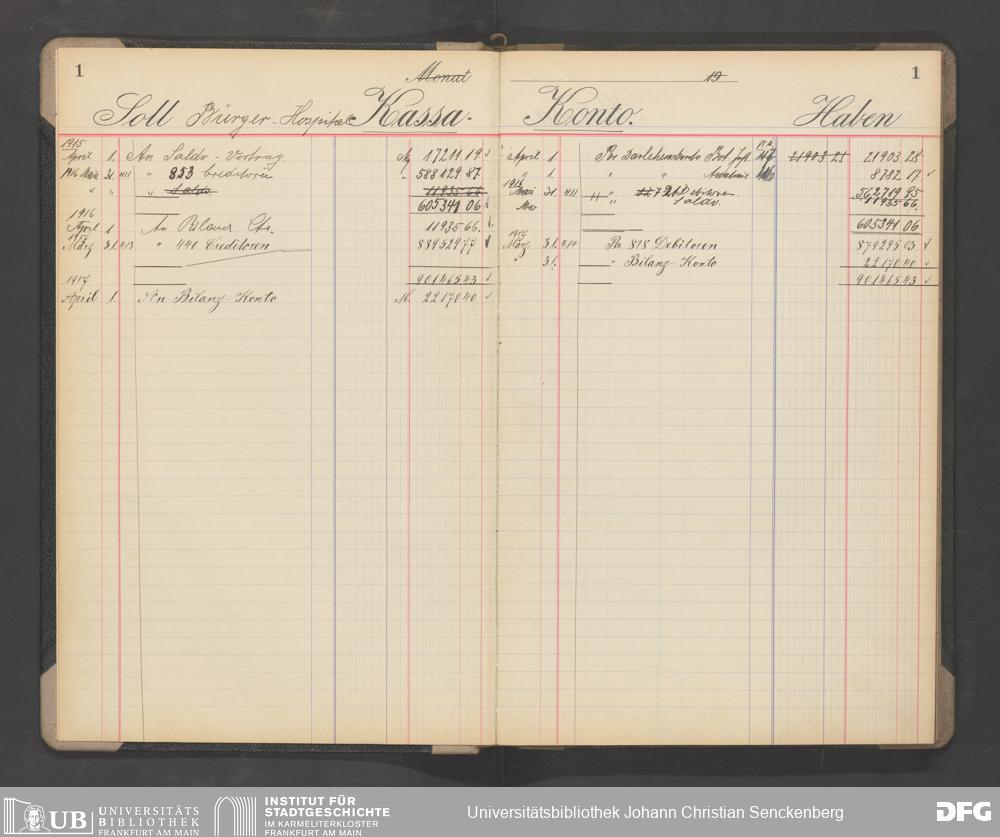 1
Monat
Soll Bürger-Hospital Kassa-
1915
April 1. An Saldo-Vortrag M 17211 19
1916 März 31. 411 " 853 Creditoren " 588129 87
" " " Saldo 11935 66
605341 06
1916
April 1 An 11935 66.
1917
März 31. 413 " 440 Creditoren 889529 77
901465 43
1917
April 1. An Bilanz-Konto M. 22170 40
19
1
Konto. Haben
April 1 Per Darlehenskonto 117 21903 28 21903 28
" 1. " " 116 8782 17
1916
März 31. 411 " 727 Debitoren 562719 95
" Saldo. 11935 66.
605341 06
1917
März 31. 414 Per 878 Debitoren 879295 03
" 31. " Bilanz-Konto 22170 40
901465 43
UB UNIVERSITÄTS
BIBLIOTHEK
FRANKFURT AM MAIN
INSTITUT FÜR
STADTGESCHICHTE
IM KARMELITERKLOSTER
FRANKFURT AM MAIN
Universitätsbibliothek Johann Christian Senckenberg
DFG